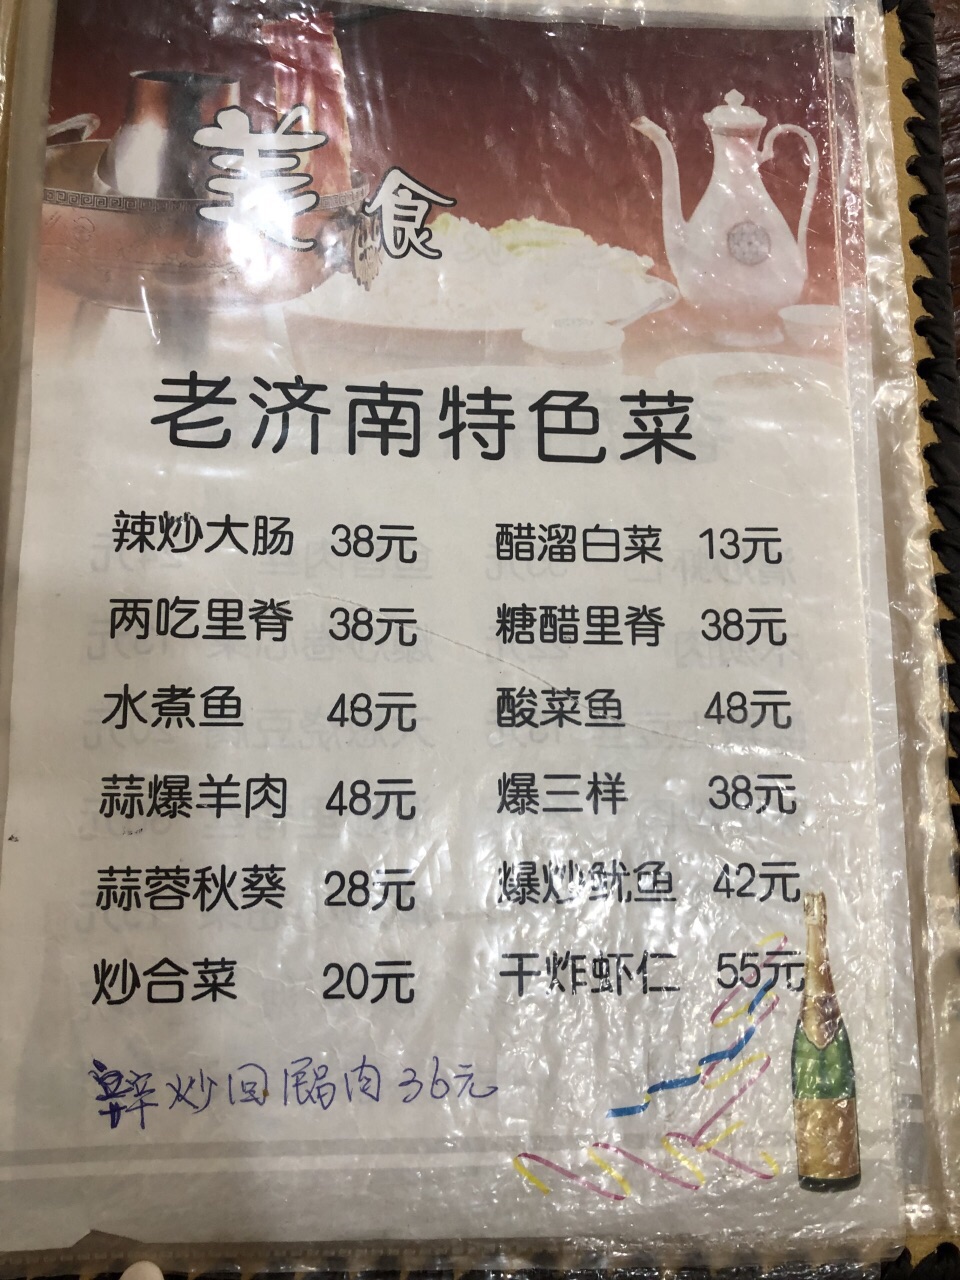 美食
老济南特色菜
辣炒大肠 38元 醋溜白菜 13元
两吃里脊 38元 糖醋里脊 38元
水煮鱼 48元 酸菜鱼 48元
蒜爆羊肉 48元 爆三样 38元
蒜蓉秋葵 28元 爆炒鱿鱼 42元
炒合菜 20元 干炸虾仁 55元
炒回 肉 36元